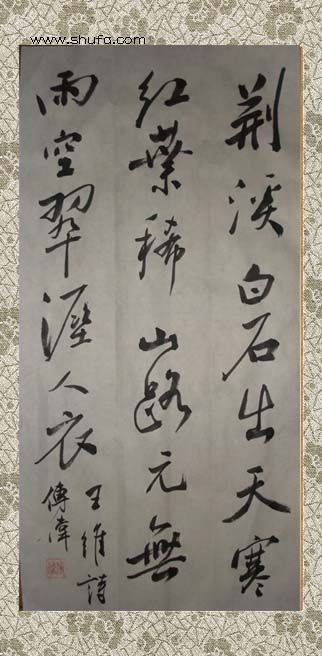 www.shufa.com
荊溪白石出天寒
紅葉稀山路元無
雨空翠溼人衣
王維詩
傅偉